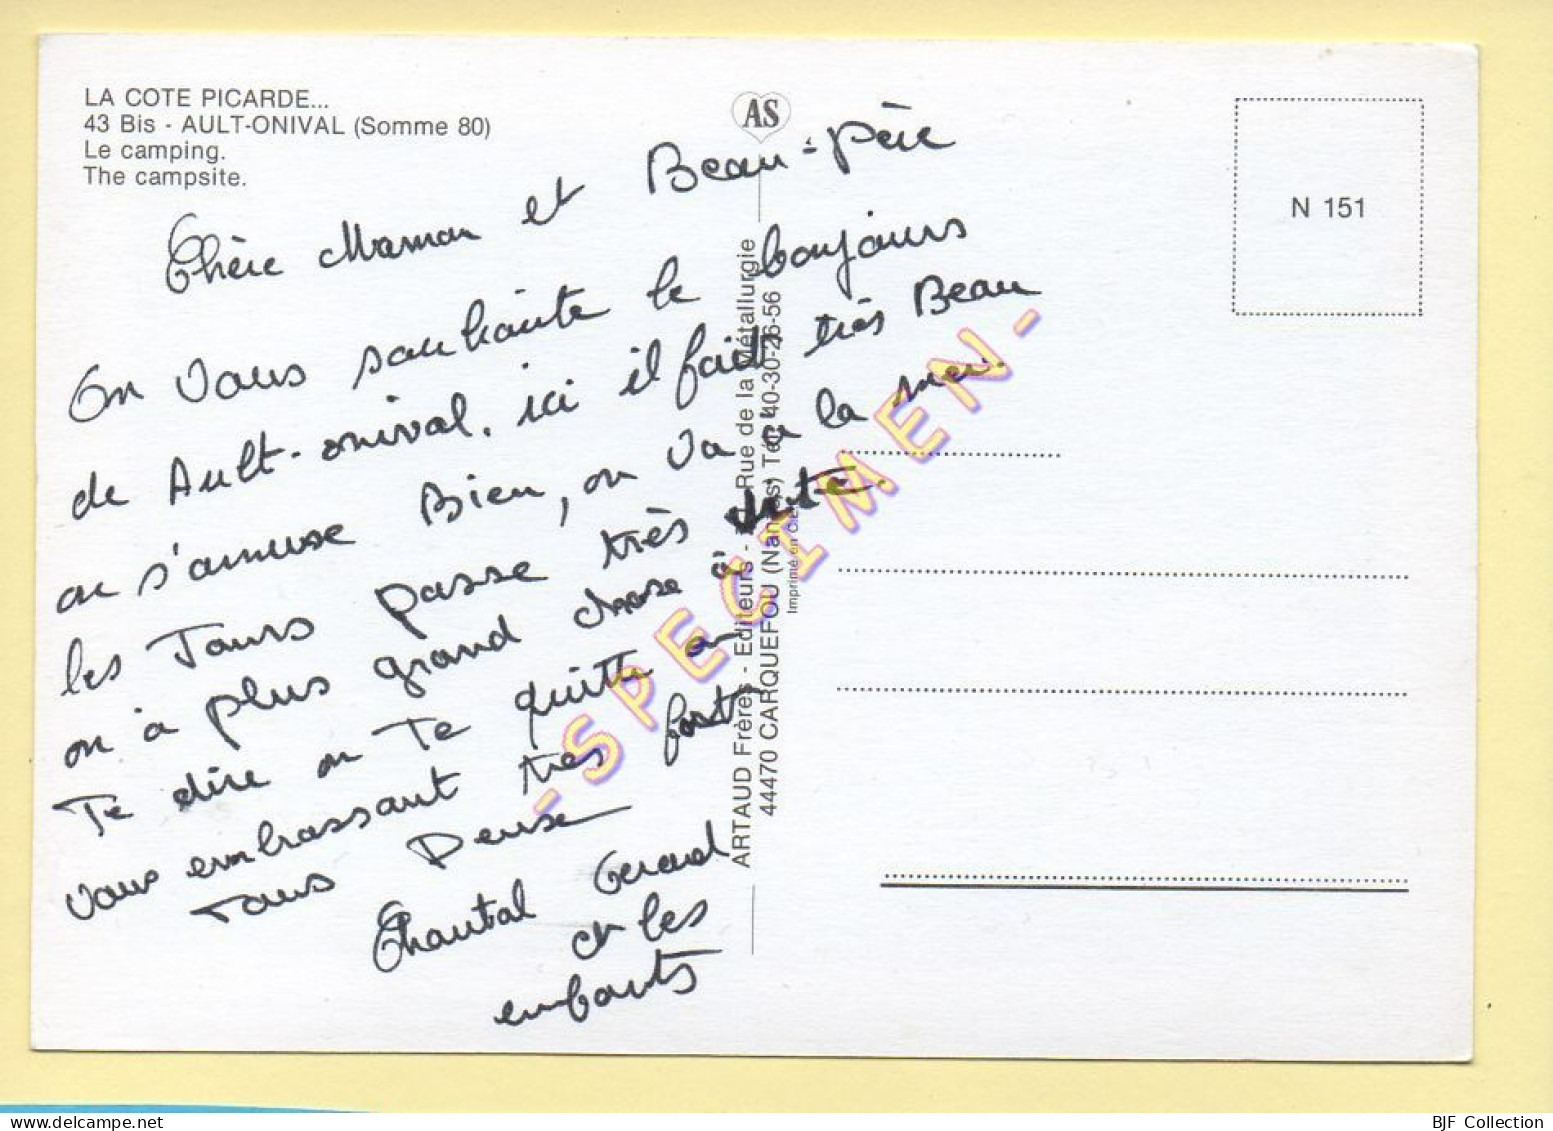 LA COTE PICARDE...
43 Bis - AULT-ONIVAL (Somme 80)
Le camping.
The campsite.
AS
N 151
Chère Maman et Beau-père
On vous souhaite le bonjours
de Ault-onival. ici il fait très Beau
on s'amuse Bien, on va à la mer.
les Jours passe très vite.
on à plus grand chose à
Te dire on Te quitte en
vous embrassant très fort
Tous Deux
Chantal Gerard
et les
enfants
ARTAUD Frères - Editeurs - Rue de la Métallurgie
44470 CARQUEFOU (Nantes) Tél. 40-30-26-56
Imprimé en
- SPECIMEN -
BJF Collection